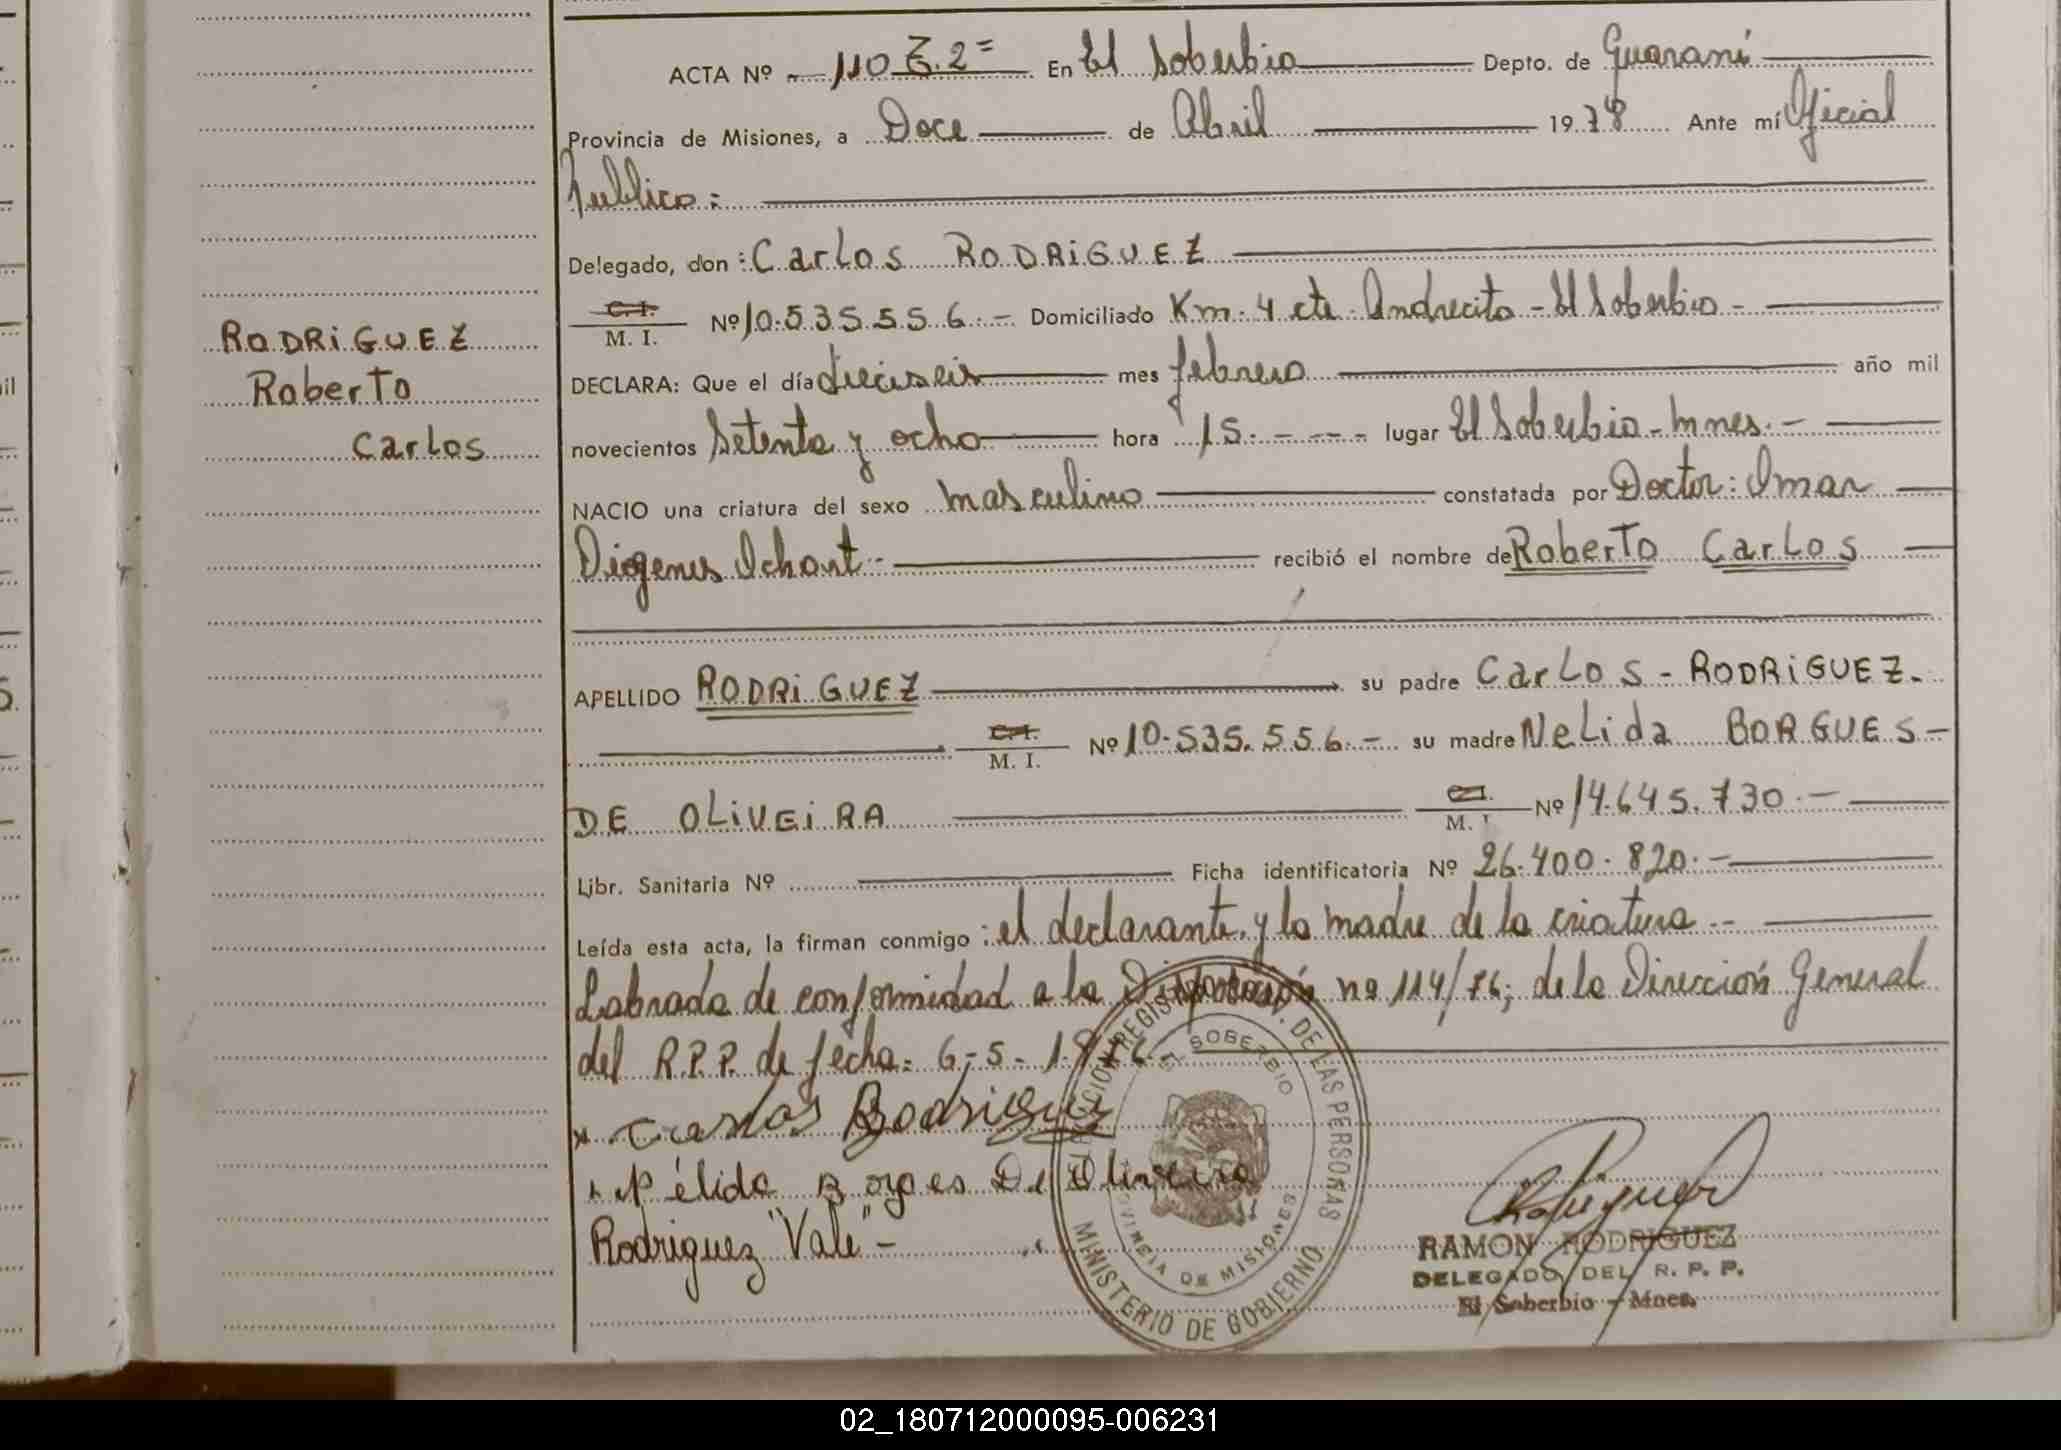 ACTA Nº 110 Z.2ª En El Soberbio Depto. de Guaraní
Provincia de Misiones, a Doce de Abril 1978 Ante mí Oficial
Publico:
Delegado, don: Carlos RODRIGUEZ
C.I. M. I. Nº 10.535.556.- Domiciliado Km. 4 cte. Andrecito - El Soberbio -
RODRIGUEZ
Roberto
Carlos
DECLARA: Que el día dieciseis mes febrero año mil
novecientos Setenta y ocho hora 15.---- lugar El Soberbio - Mnes.-
NACIO una criatura del sexo masculino constatada por Doctor: Omar
Diogenes Ochart - recibió el nombre de Roberto Carlos
APELLIDO RODRIGUEZ su padre Carlos - RODRIGUEZ.
C.I. M. I. Nº 10.535.556.- su madre Nelida BORGUES -
DE OLIVEIRA C.I. M. I. Nº 14.645.730.-
Libr. Sanitaria Nº Ficha identificatoria Nº 26.400.820.-
Leída esta acta, la firman conmigo: el declarante, y la madre de la criatura.-
Labrada de conformidad a la Disposición nº 114/76; de la Dirección General
del R.P.P. de fecha: 6-5-1.976.-
Carlos Rodriguez
Nélida Borges De Oliveira
Rodriguez "Vale" -
REGIS DE LAS PERSONAS
EL SOBERBIO
PROVINCIA DE MISIONES
MINISTERIO DE GOBIERNO
RAMON RODRIGUEZ
DELEGADO DEL R. P. P.
El Soberbio - Mnes.
02_180712000095-006231